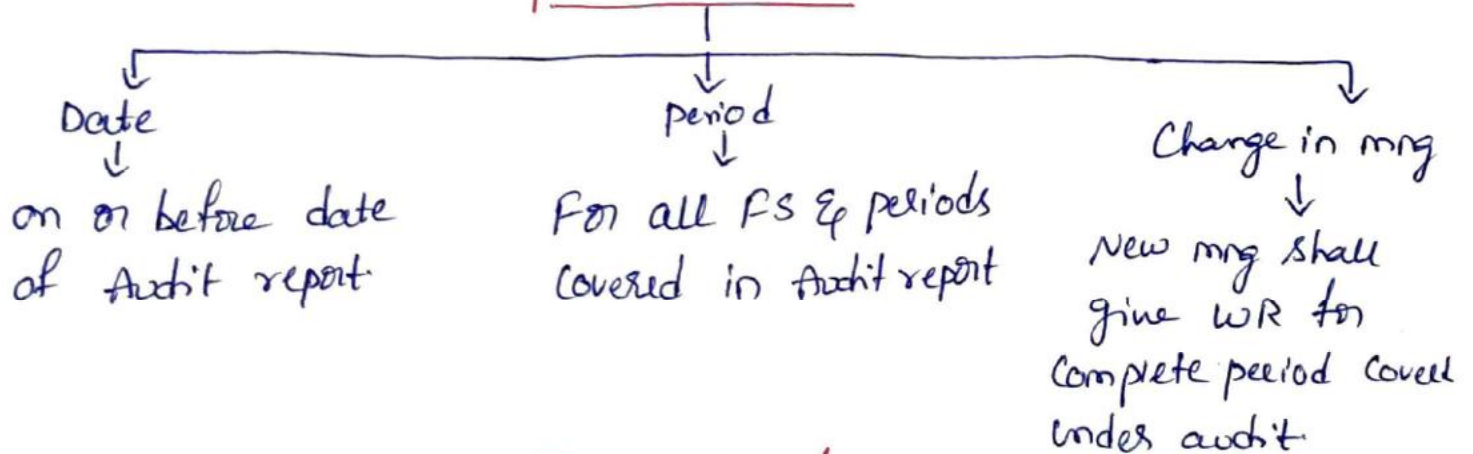 Date
on or before date
of Audit report.
period
For all FS & periods
covered in Audit report
Change in mng
New mng shall
give WR for
Complete period Coverd
under audit.